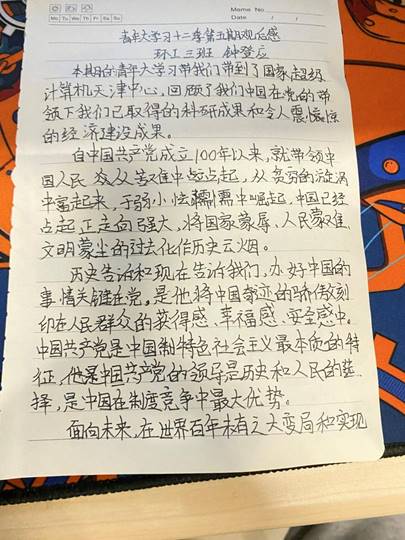 Memo No.
Mo Tu We Th Fr Sa Su
Date / /
青年大学习十二季第五期观后感
环工三班 钟登应
本期的青年大学习带我们带到了国家超级
计算机天津中心，回顾了我们中国在党的带
领下我们已取得的科研成果和令人震惊
的经济建设成果。
自中国共产党成立100年以来，就带领中
国人民 从苦难中站起，从贫穷的漩涡
中富起来，于弱小怯懦中崛起，中国已经
点起正走向强大，将国家蒙辱、人民蒙难、
文明蒙尘的过去化作历史云烟。
历史告诉和现在告诉我们，办好中国的
事情关键在党。是他将中国 的骄傲刻
印在人民群众的获得感、幸福感、安全感中。
中国共产党是中国制特色社会主义最本质的特
征，他是中国共产党的领导是历史和人民的选
择，是中国在制度竞争中最大优势。
面向未来，在世界百年未有之大变局和实现